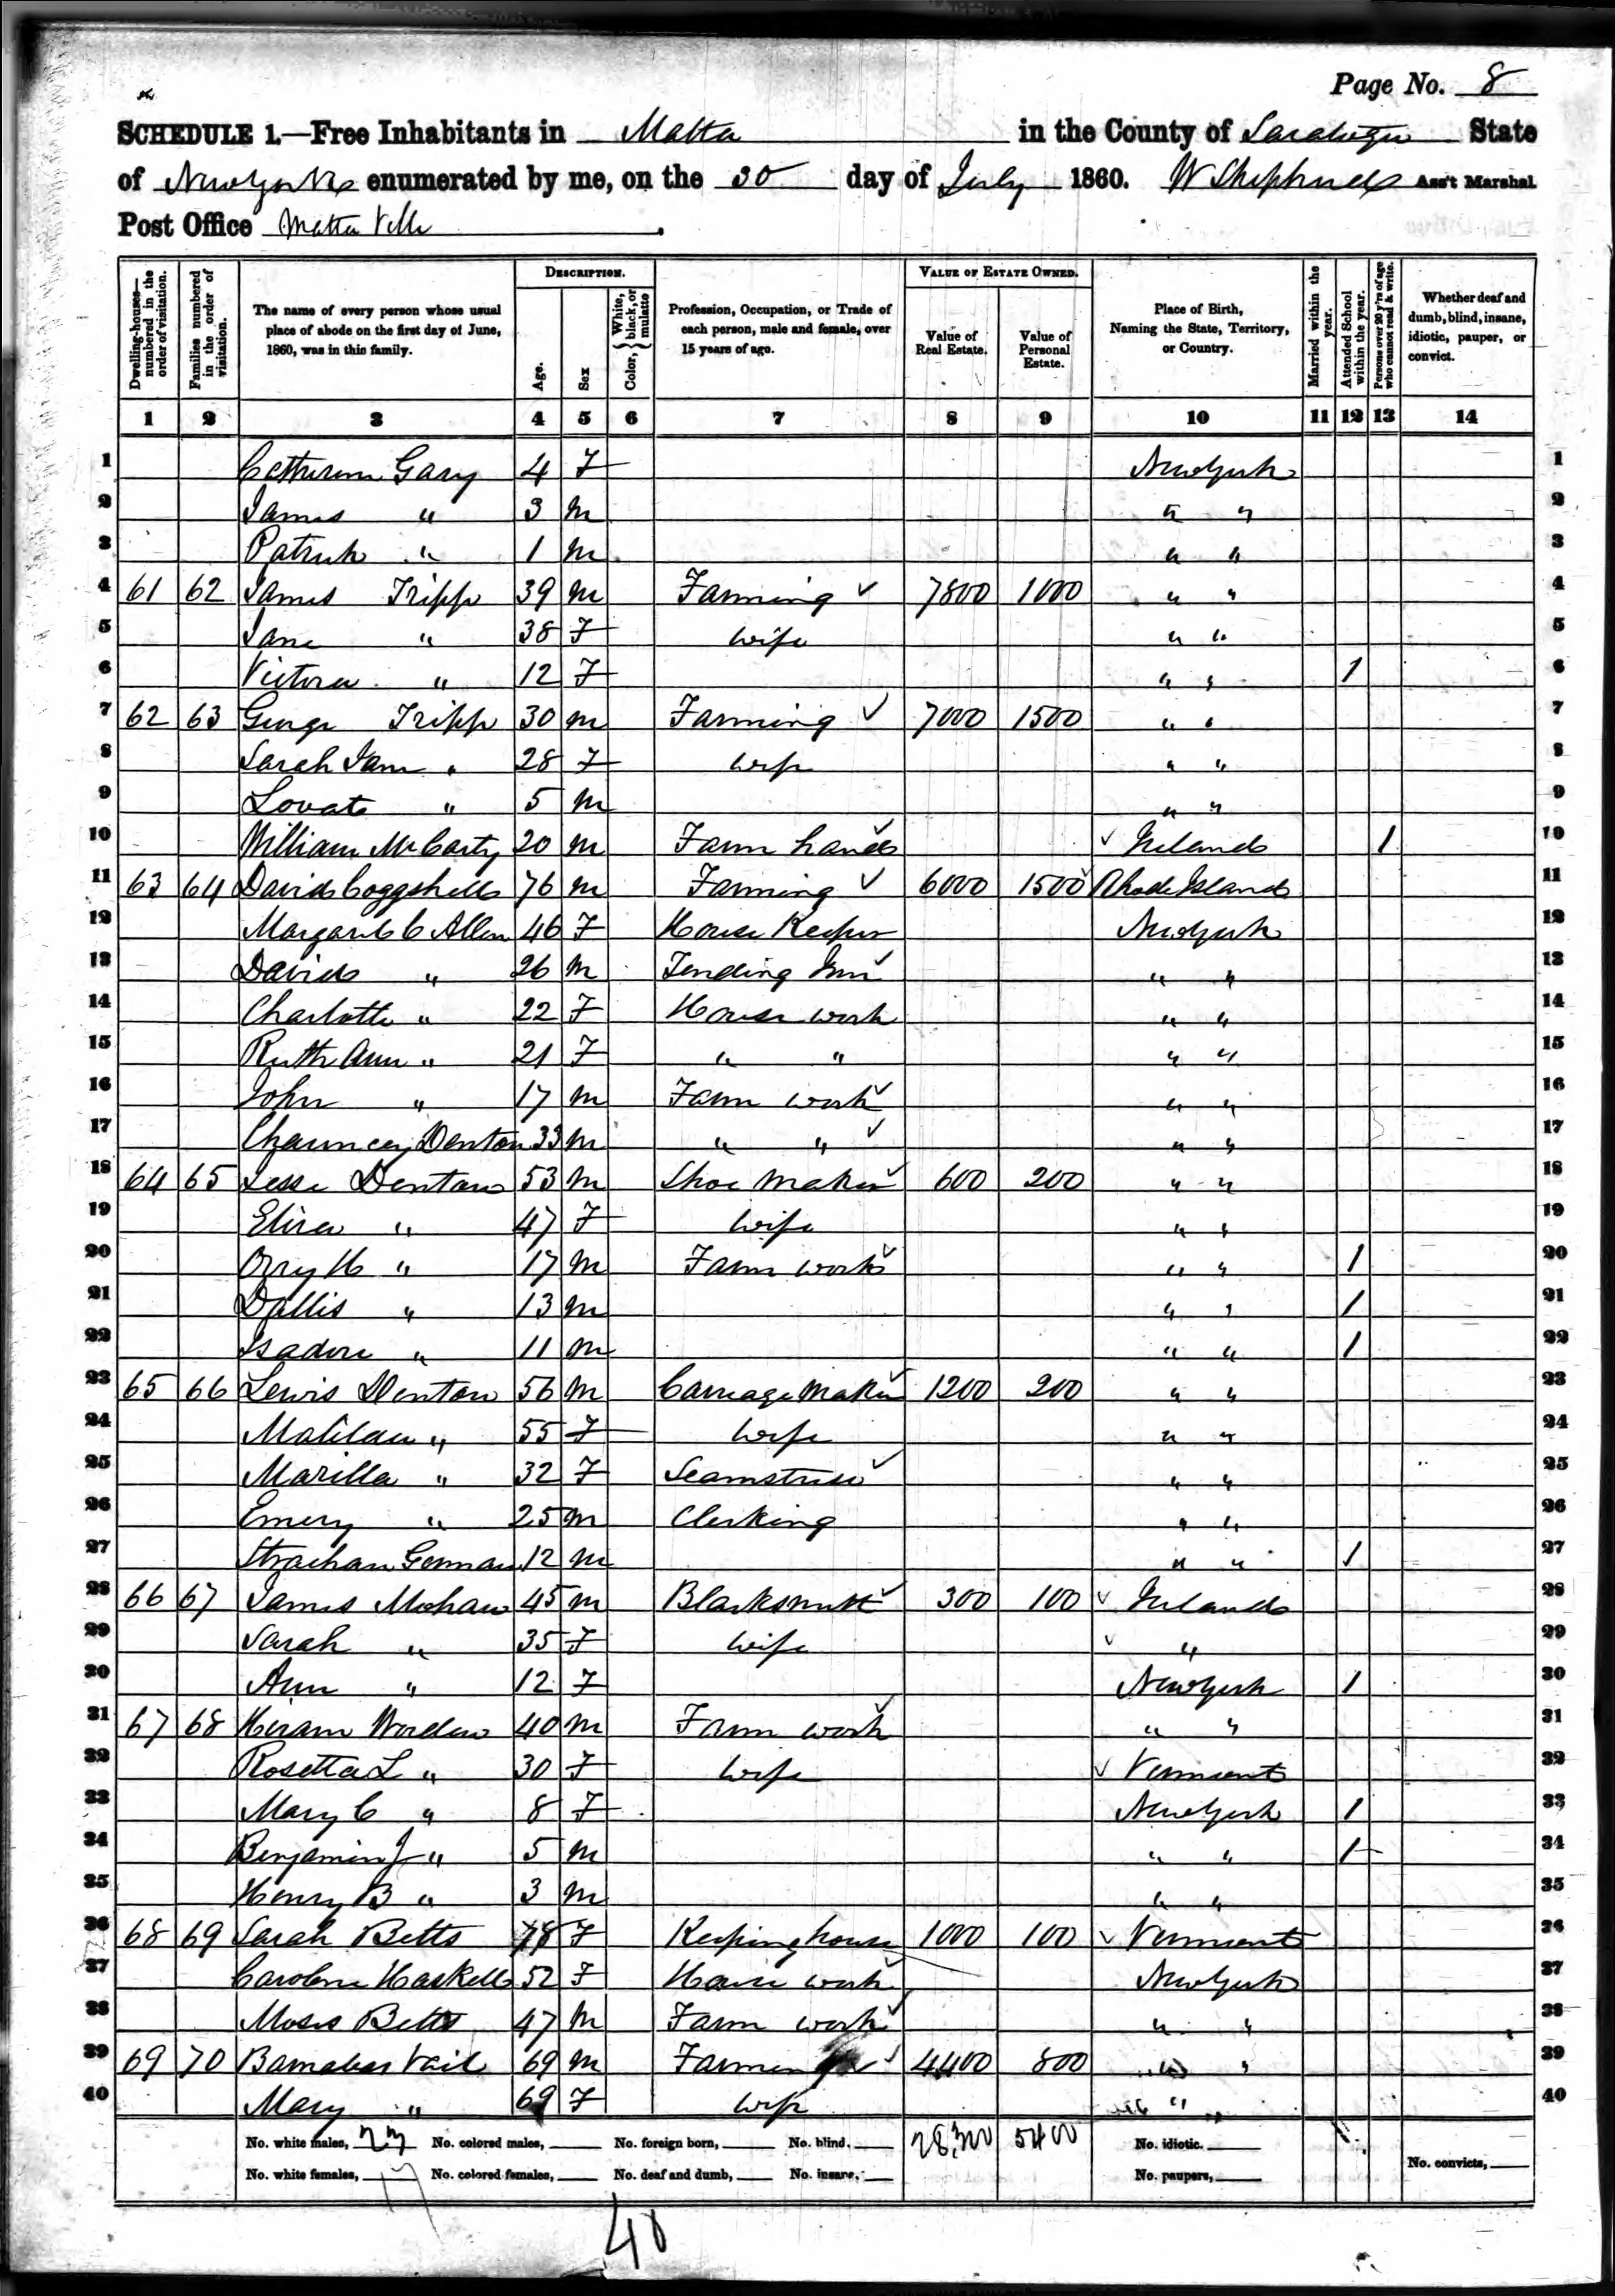 Page No. 8
SCHEDULE 1.—Free Inhabitants in Malta in the County of Saratoga State
of New York enumerated by me, on the 30 day of July 1860. W Shepherd Ass't Marshal
Post Office Malta Ville
Dwelling-houses—numbered in the order of visitation. Families numbered in the order of visitation. The name of every person whose usual place of abode on the first day of June, 1860, was in this family. DESCRIPTION. Age. Sex Color, {White, black, or mulatto Profession, Occupation, or Trade of each person, male and female, over 15 years of age. VALUE OF ESTATE OWNED. Value of Real Estate. Value of Personal Estate. Place of Birth, Naming the State, Territory, or Country. Married within the year. Attended School within the year. Persons over 20 y'rs of age who cannot read & write. Whether deaf and dumb, blind, insane, idiotic, pauper, or convict.
1 2 3 4 5 6 7 8 9 10 11 12 13 14
1 Catherine Gary 4 F New York 1
2 James " 3 m " " 2
3 Patrick " 1 m " " 3
4 61 62 James Tripp 39 m Farming ✓ 7800 1000 " " 4
5 Jane " 38 F wife " " 5
6 Victora " 12 F " " 1 6
7 62 63 George Tripp 30 m Farming ✓ 7000 1500 " " 7
8 Sarah Jane " 28 F wife " " 8
9 Lovate " 5 m " " 9
10 William McCarty 20 m Farm hand ✓ ✓ Ireland 1 10
11 63 64 David Coggshell 76 m Farming ✓ 6000 1500 ✓ Rhode Island 11
12 Margaret C Allen 46 F House Keeper New York 12
13 David " 26 m Tending Inn ✓ " " 13
14 Charlotte " 22 F House work " " 14
15 Ruth Ann " 21 F " " " " 15
16 John " 17 m Farm work ✓ " " 16
17 Chauncey Denton 33 m " " ✓ " " 17
18 64 65 Jesse Denton 53 m Shoe Maker ✓ 600 200 " " 18
19 Eliza " 47 F wife " " 19
20 Orry H " 17 m Farm work ✓ " " 1 20
21 Dallis " 13 m " " 1 21
22 Isadore " 11 m " " 1 22
23 65 66 Lewis Denton 56 m Carriage Maker ✓ 1200 200 " " 23
24 Matilda " 55 F wife " " 24
25 Marilla " 32 F Seamstress ✓ " " 25
26 Emery " 25 m Clerking " " 26
27 Strachan German 12 m " " 1 27
28 66 67 James Mehan 45 m Blacksmith ✓ 300 100 ✓ Ireland 28
29 Sarah " 35 F wife ✓ " 29
30 Ann " 12 F New York 1 30
31 67 68 Hiram Worden 40 m Farm work ✓ " " 31
32 Rosetta L " 30 F wife ✓ Vermont 32
33 Mary C " 8 F New York 1 33
34 Benjamin J " 5 m " " 1 34
35 Henry B " 3 m " " 35
36 68 69 Sarah Betts 78 F Keeping house 1000 100 ✓ Vermont 36
37 Caroline Haskell 52 F House work New York 37
38 Moses Betts 47 m Farm work ✓ " " 38
39 69 70 Barnabas Vail 69 m Farming ✓ 4400 800 " " 39
40 Mary " 69 F wife " " 40
No. white males, 23 No. colored males, No. foreign born, No. blind. 28,300 5400 No. idiotic.
No. white females, 17 No. colored females, No. deaf and dumb, No. insane, No. paupers, No. convicts,
40